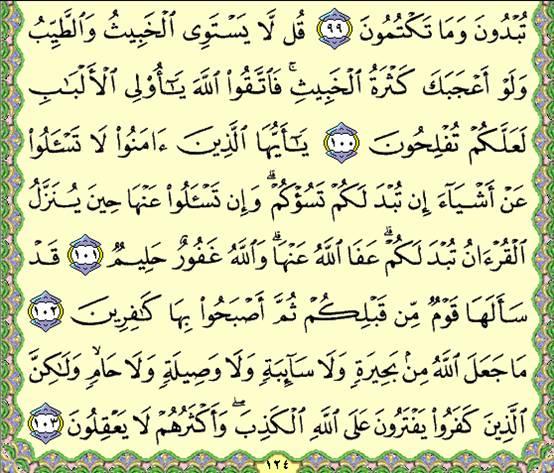 تُبْدُونَ وَمَا تَكْتُمُونَ ٩٩ قُل لَّا يَسْتَوِى ٱلْخَبِيثُ وَٱلطَّيِّبُ
وَلَوْ أَعْجَبَكَ كَثْرَةُ ٱلْخَبِيثِ ۚ فَٱتَّقُوا۟ ٱللَّهَ يَـٰٓأُو۟لِى ٱلْأَلْبَـٰبِ
لَعَلَّكُمْ تُفْلِحُونَ ١٠٠ يَـٰٓأَيُّهَا ٱلَّذِينَ ءَامَنُوا۟ لَا تَسْـَٔلُوا۟
عَنْ أَشْيَآءَ إِن تُبْدَ لَكُمْ تَسُؤْكُمْ ۖ وَإِن تَسْـَٔلُوا۟ عَنْهَا حِينَ يُنَزَّلُ
ٱلْقُرْءَانُ تُبْدَ لَكُمْ ۖ عَفَا ٱللَّهُ عَنْهَا ۗ وَٱللَّهُ غَفُورٌ حَلِيمٌ ١٠١ قَدْ
سَأَلَهَا قَوْمٌ مِّن قَبْلِكُمْ ثُمَّ أَصْبَحُوا۟ بِهَا كَـٰفِرِينَ ١٠٢
مَا جَعَلَ ٱللَّهُ مِنۢ بَحِيرَةٍ وَلَا سَآئِبَةٍ وَلَا وَصِيلَةٍ وَلَا حَامٍ ۙ وَلَـٰكِنَّ
ٱلَّذِينَ كَفَرُوا۟ يَفْتَرُونَ عَلَى ٱللَّهِ ٱلْكَذِبَ ۖ وَأَكْثَرُهُمْ لَا يَعْقِلُونَ ١٠٣
١٢٤